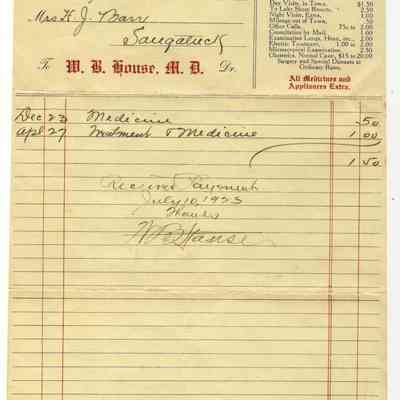 Mrs K. J. Marr
Saugatuck
To W. B. House, M. D. Dr.
Day Visit, in Town, $1.50
To Lake Shore Resorts, 2.50
Night Visit, Extra, 1.00
Mileage out of Town, .50
Office Calls, 75c to 2.00
Consultation by Mail, 1.00
Examination Lungs, Heart, etc., 2.00
Electric Treatment, 1.00 to 2.00
Microscopical Examination, 2.50
Obstetrics, Normal Case, $15.00 to 20.00
Surgery and Special Diseases at
Ordinary Rates.
All Medicines and
Appliances Extra.
Dec 23 Medicine .50
Apl 27 Treatment & Medicine 1.00
1.50
Received Payment
July 10, 1923
Thanks
W B House